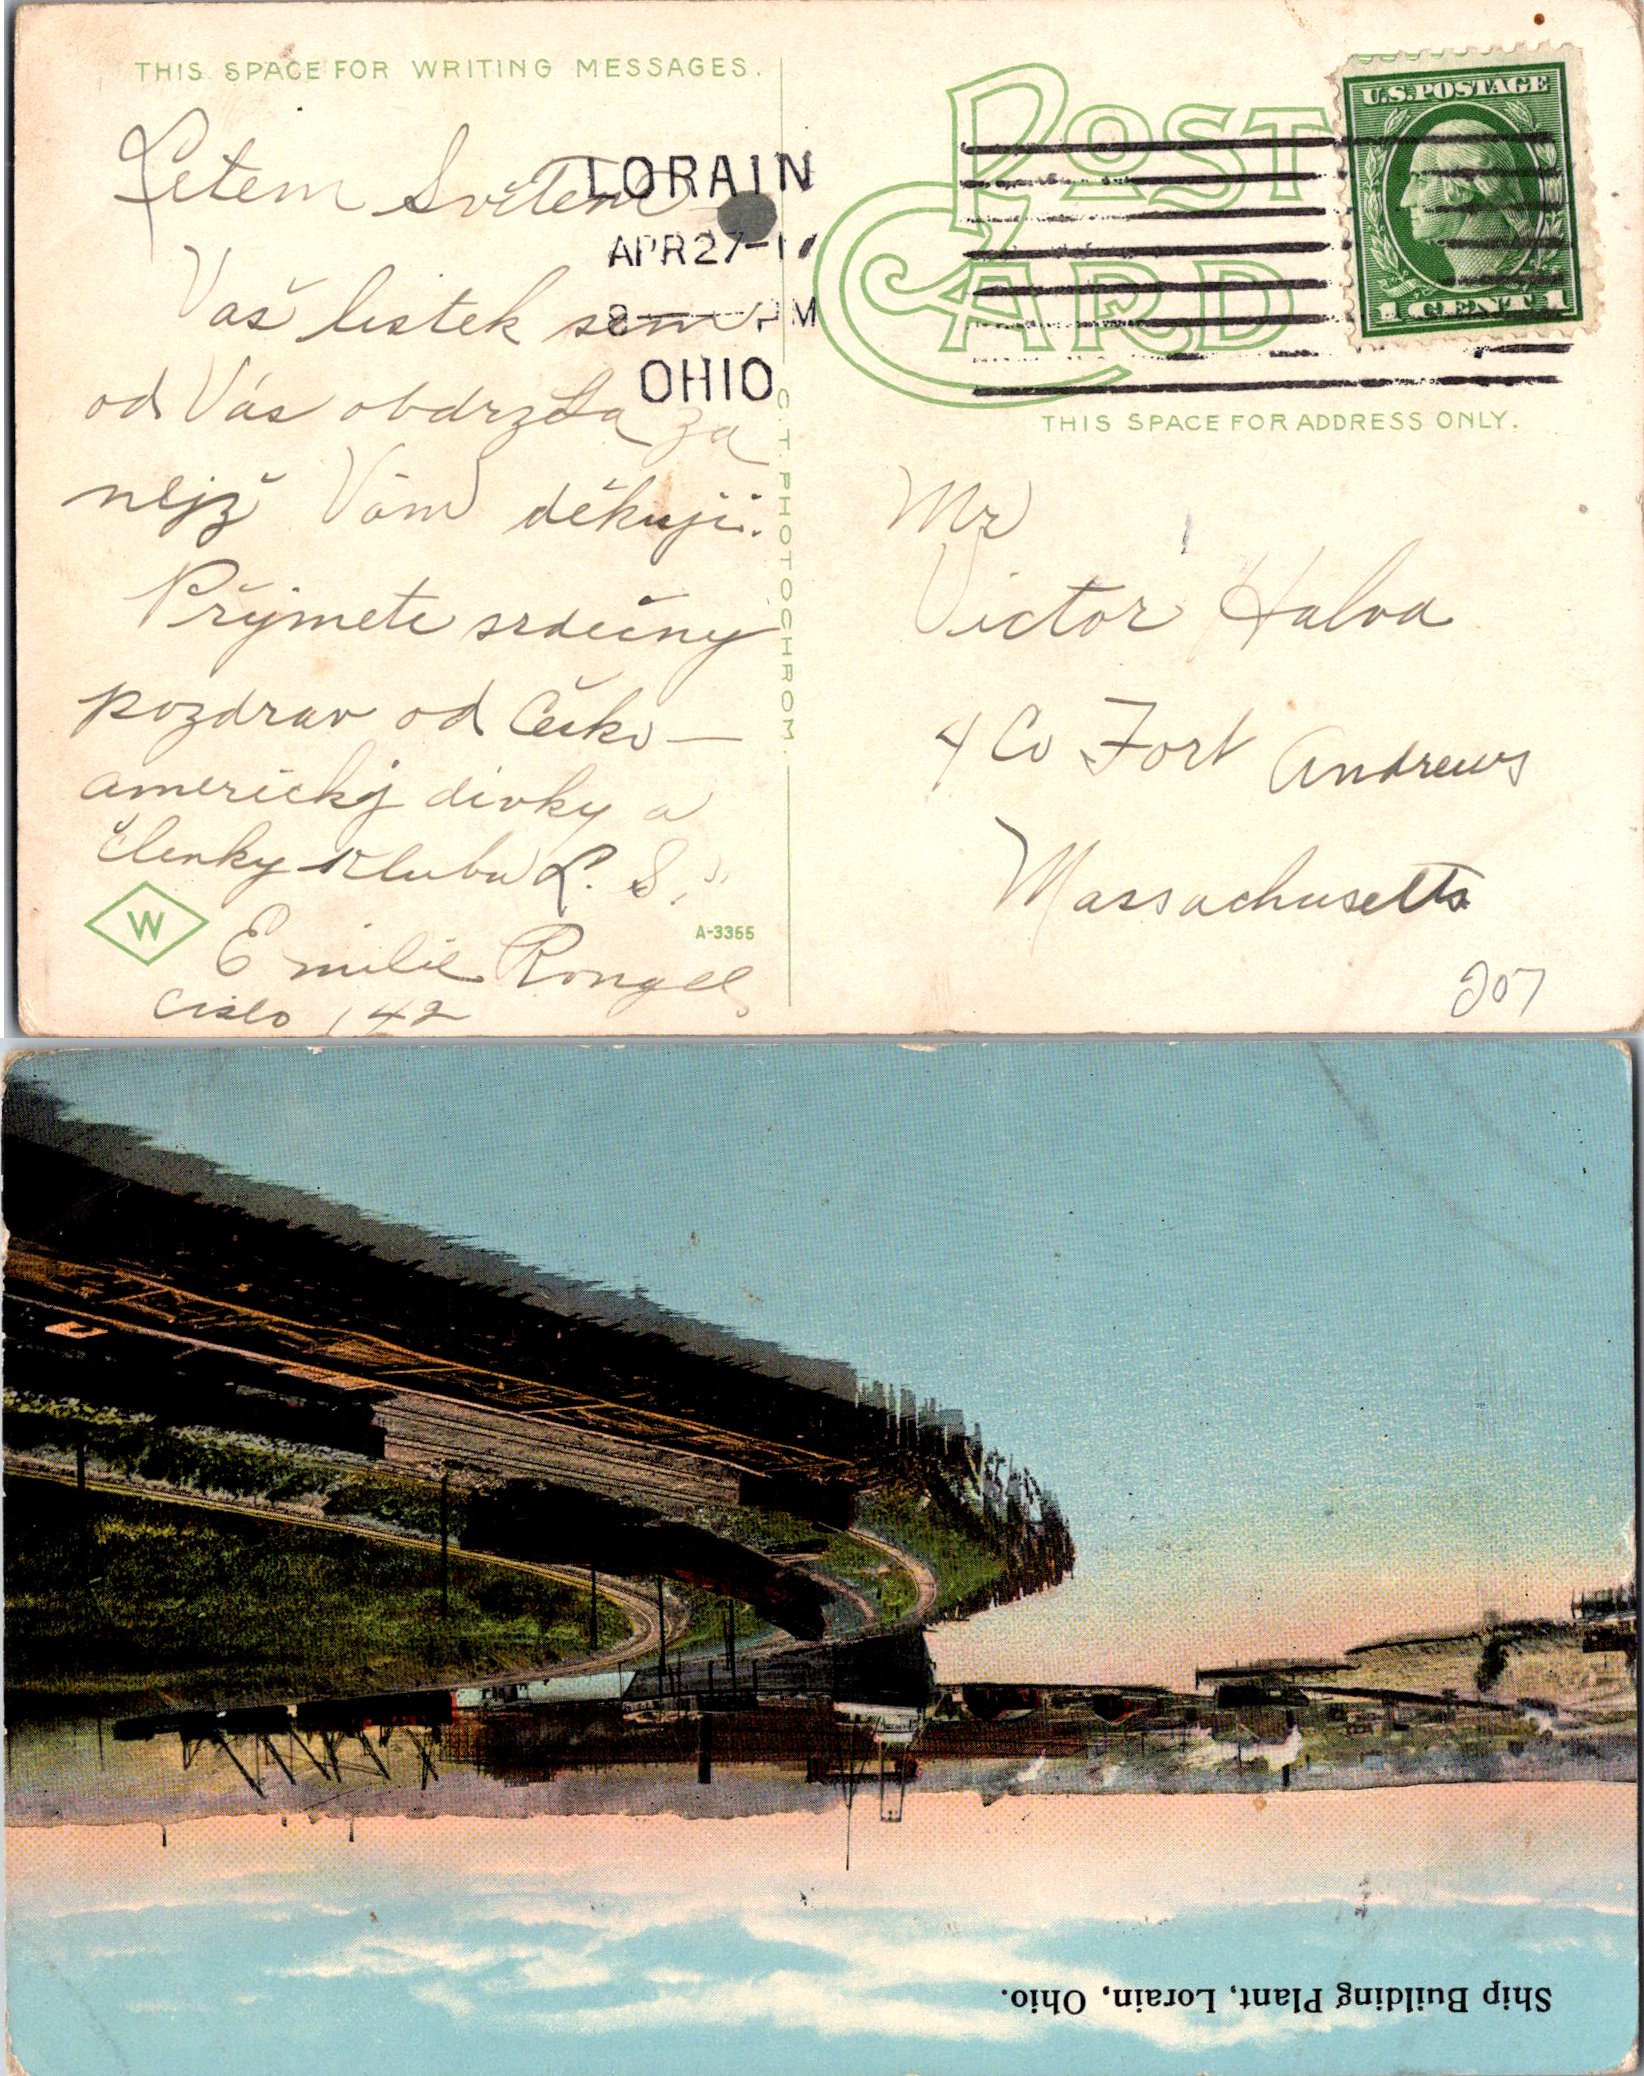 THIS SPACE FOR WRITING MESSAGES.
Letem Světem
Vaš listek sem
od Vás obdržela za
nejž Vám děkuji.
Přijmete srdečny
pozdrav od Česko-
americký divky a
členky klubu L. S."
Emilie
Cislo 142
W
A-3355
C. T. PHOTOCHROM.
LORAIN
APR 27-17
8 - PM
OHIO
POST
CARD
U.S.POSTAGE
1 CENT 1
THIS SPACE FOR ADDRESS ONLY.
Mr
Victor Halva
4 Co Fort Andrews
Massachusetts
207
Ship Building Plant, Lorain, Ohio.